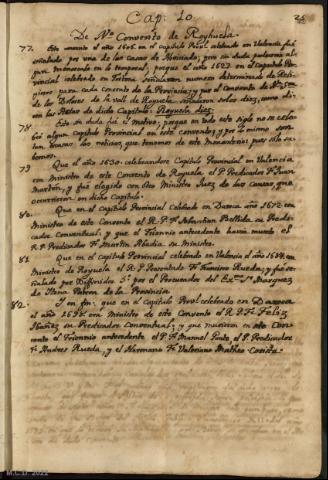 Cap: 10.
De Nrô. Convento de Royhuela.
77. Este convento el año 1606. en el Capitulo Provl. celebrado en Valencia fué
señalado por una de las casas de Noviciado; pero sin duda padeceria al-
gun menoscabo en lo temporal, porque el año 1627. en el Capitulo Pro-
vincial celebrado en Tortosa señalaron numero determinado de Reli-
giosos para cada convento de la Provincia, y por el Convento de Nª. Srª
de los Dolores de la vall de Royuela señalaron solos diez,
las Actas de dicho Capitulo: Royuela diez.
78. Esto sin duda fue el motivo, porque en todo este siglo no se cele-
bró algun Capitulo Provincial en este convento, y por lo mismo son
las noticias, que tenemos de este Monasterio; pues solo sa-
bemos.
79. Que el año 1630. celebrandose Capitulo Provincial en Valencia
era Ministro de este Convento de Royuela el P. Predicador Fr. Juan
Martin, y fué elegido con otro Ministro Juez de las causas, que
ocurrieron en dicho Capitulo.
80. Que en el Capitulo Provincial celebrado en Daroca año 1672. era
Ministro de este Convento el R. P. Fr. Sebastian Bellido, su Predi-
cador Conventual; y que el Triennio antecedente havia muerto el
R. P. Predicador Fr. Martin Abadia su Ministro.
81. Que en el Capitulo Provincial celebrado en Valencia el año 1684. era
Ministro de Royuela el R. P. Presentado Fr. Francisco Rueda; y fué se-
ñalado por Diffinidor 3º. por el Procurador del Exmo. Sr. Marques
de Ariza Patron de la Provincia.
82. Y en fin: que en el Capitulo Provl. celebrado en Daroca
el año 1698. era Ministro de este Convento el R. P. Fr. Felix
Ibañez su Predicador Conventual; y que murieron en este Con-
vento el Triennio antecedente el P. Fr. Manuel Pinto, el P. Predicador
Fr. Andres Rueda, y el Hermano Fr. Valeriano Matheo Corista.
M.C.D. 2022